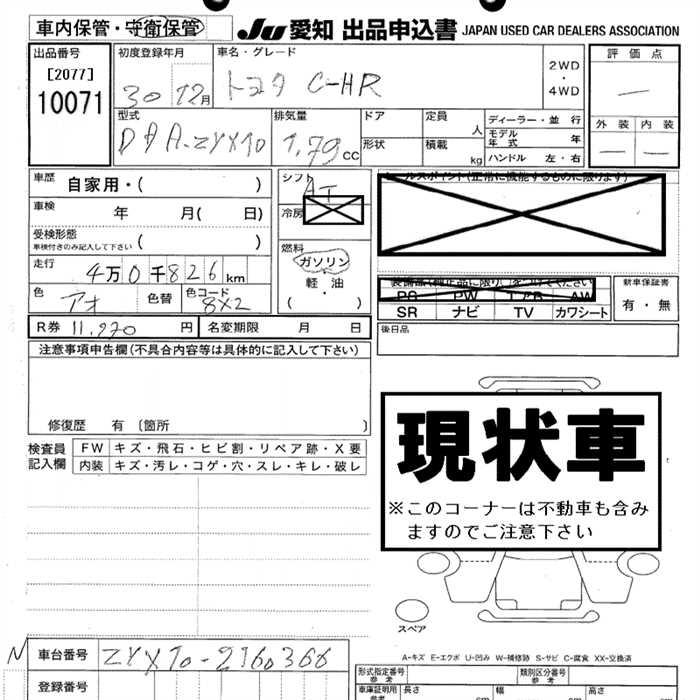 車内保管・守衛保管
JU 愛知 出品申込書 JAPAN USED CAR DEALERS ASSOCIATION
出品番号
[2077]
10071
初度登録年月
30 12月
車名・グレード
トヨタ C-HR
2WD
・
4WD
評価点
―
外装 内装
― ―
型式
DAA-ZYX10
排気量
1.79cc
ドア
形状
定員
人
積載
kg
ディーラー・並行
モデル
年式 年
ハンドル 左・右
車歴 自家用・( )
車検 年 月( 日)
受検形態
車検付きのみ記入して下さい ( )
走行 4万0千826km
色 アオ 色替 色コード 8X2
R券 11,970 円 名変期限 月 日
シフト AT
冷房
燃料
ガソリン
・
軽油
( ・ )
セールスポイント(正常に機能するものに限ります)
PS PW エアB AW
SR ナビ TV カワシート
新車保証書
有・無
後日品
注意事項申告欄(不具合内容等は具体的に記入して下さい)
修復歴 有 〔箇所 〕
検査員
記入欄
FW キズ・飛石・ヒビ割・リペア跡・X要
内装 キズ・汚レ・コゲ・穴・スレ・キレ・破レ
現状車
※このコーナーは不動車も含み
ますのでご注意下さい
スペア
A-キズ E-エクボ U-凹み W-補修跡 S-サビ C-腐食 XX-交換済
N 車台番号 ZYX10-2160366
登録番号
形式指定番号
参考
類別区分番号
参考
車庫証明用
参考
長さ cm 幅 cm 高さ cm